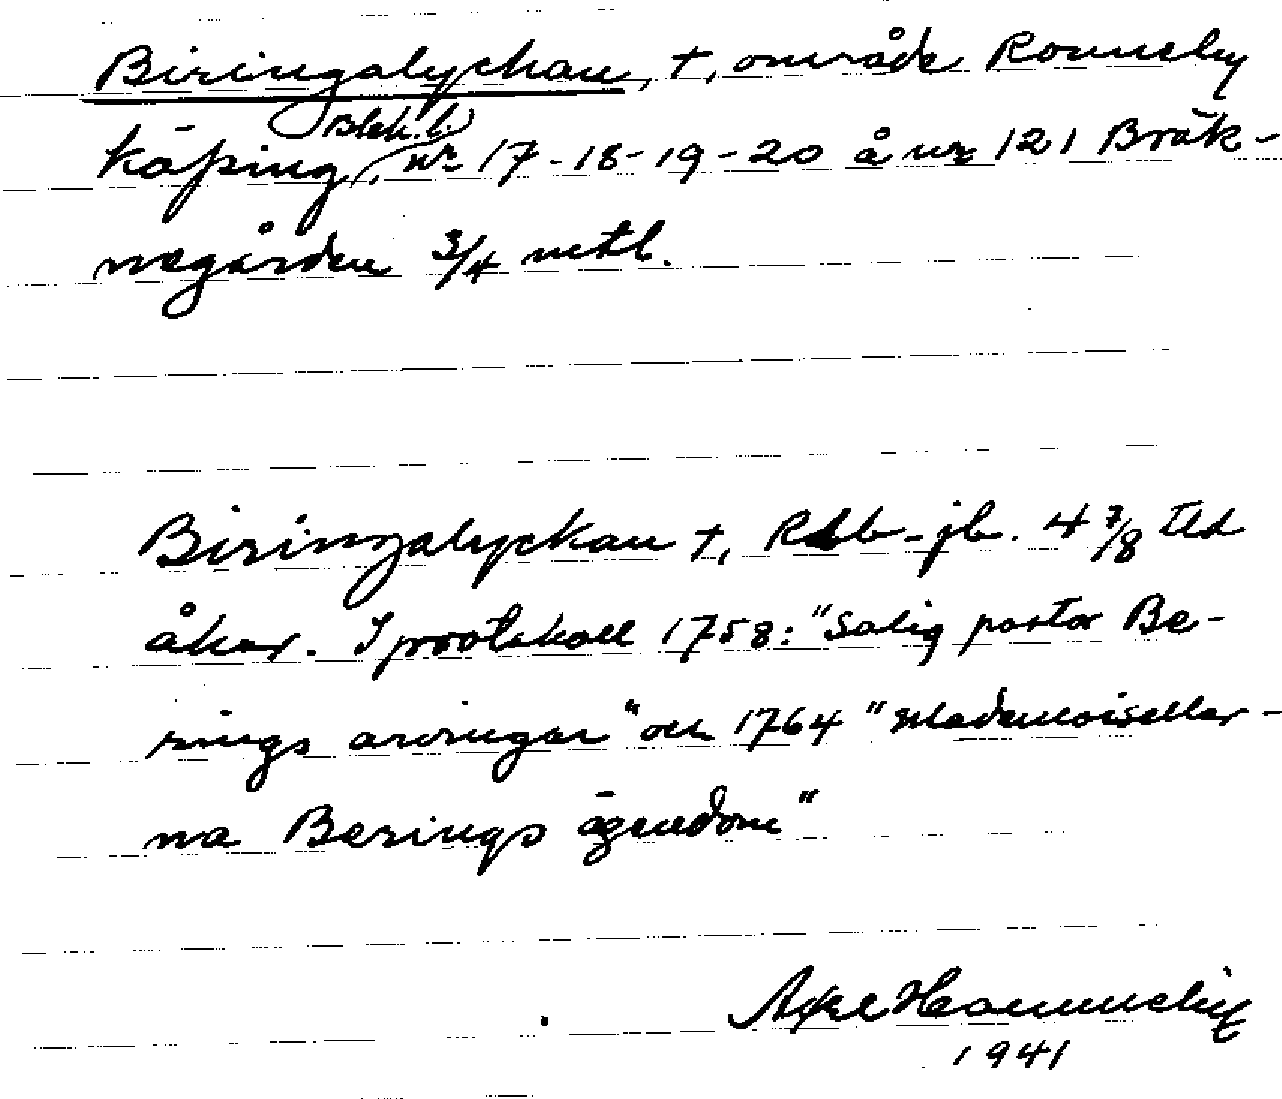 Biringalyckan, †, område Ronneby
Blek. l.
köping, nr 17-18-19-20 å nr 121 Bräk-
negården 3/4 mtl.
Biringalyckan †, Rbb-jb. 4 7/8 tld
åker. I protokoll 1758: "Salig pastor Be-
rings arvingar" och 1764 "Mademoiseller-
na Berings ägendom"
Axel
1941